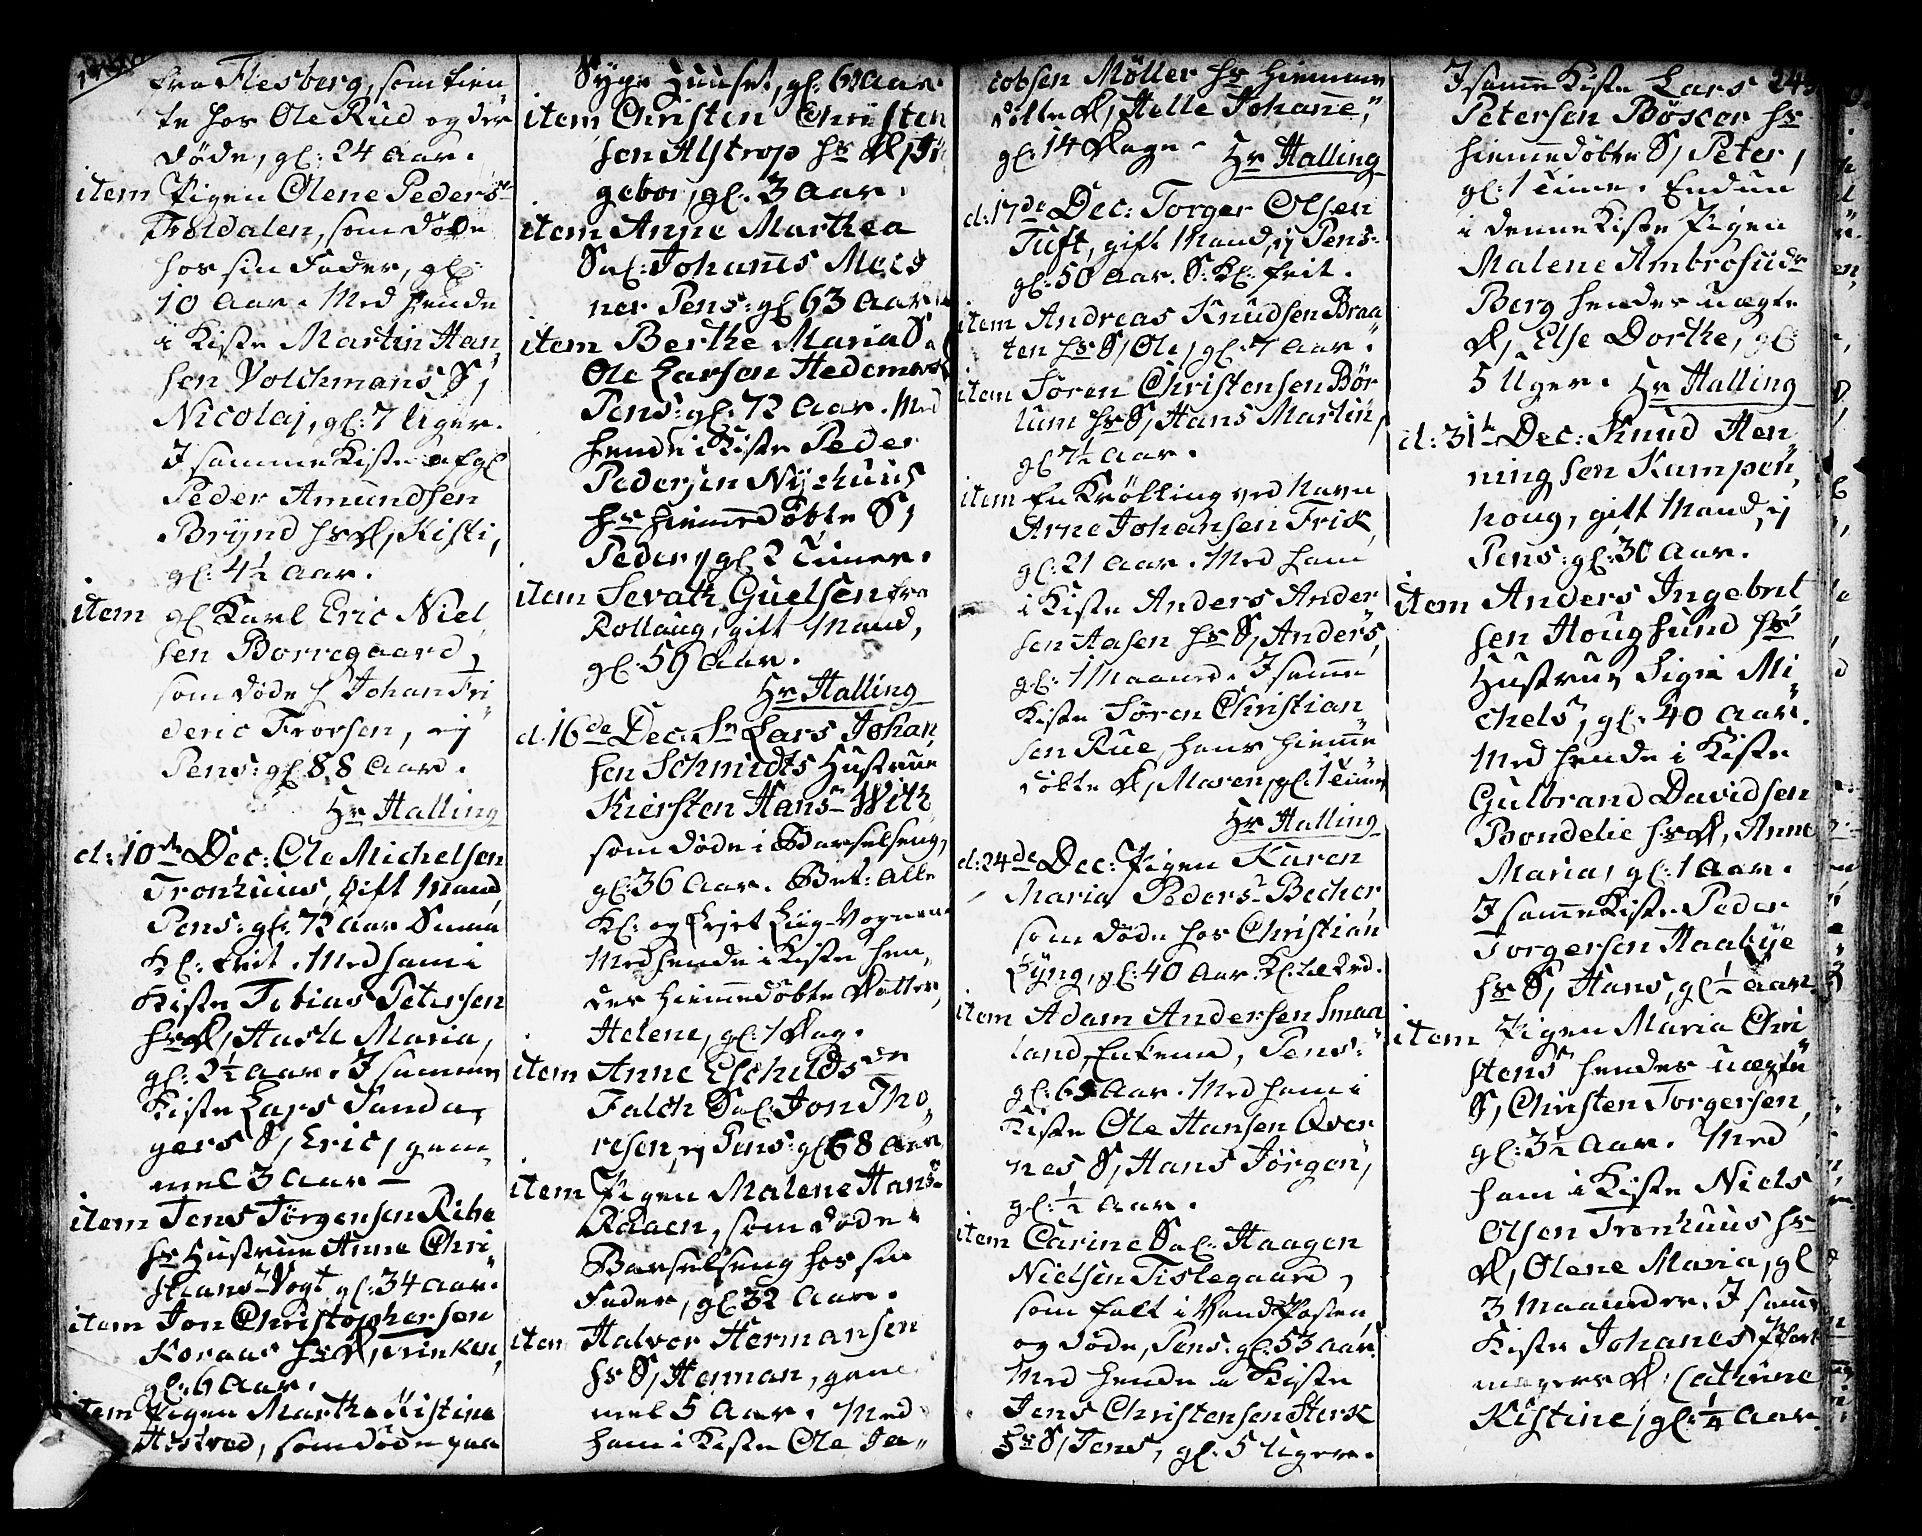 fra Flesberg, som tien
te hos Ole Rud og der
døde, gl: 24 Aar.
item Pigen Olene Peders
Foldalen, som døde
hos sin Fader, gl:
10 Aar. Med hende
i Kiste Martin Han
sen Volchmans S,
Nicolaj, gl: 7 Uger.
I samme Kiste afgl
Peder Amundsen
Brynd hs D, Kisti,
gl: 4½ Aar.
item gl Karl Eric Niel
sen Borregaard,
som døde h Johan Fri
deric Frorsen, ej
Pens: gl 88 Aar.
Hr Halling
d: 10de Dec: Ole Michelsen
Tronhuus, gift Mand,
Pens: gl: 72 Aar Smaa
Kl: frit. Med ham i
Kiste Tobias Petersen
hs D, Maria,
gl: 2½ Aar. I samme
Kiste Lars Sanda,
gers S, Eric, gam
mel 3 Aar —
item Jens Jørgensen Ribe
hs Hustrue Anne Chri
stians Vogt, gl: 34 Aar.
item Jon Christophersen
Koraas hs D,
gl: 6 Aar.
item Pigen Marthe Kistine
som døde paa
Syge Huuset, gl: 61 Aar
item Christen Christen
sen Alstrop hs D, In
gebor, gl. 3 Aar.
item Anne Marthea
Sal: Johannes Meis
ner Pens: gl 63 Aar
item Berthe Maria Sal
Ole Larsen Hedemark
Pens: gl: 72 Aar. Med
hende i Kiste Peder
Pedersen Nyehuus
hs hiemmedøbte S,
Peder, gl 2 Timer.
item Sevath Guelsen fra
Rollaug, gift Mand,
gl: 59 Aar.
Hr Halling
d. 16de Dec. Sr Lars Johan
sen Schmidts Hustrue
Kiersten Hans With
som døde i Barselseng,
gl: 36 Aar. Bet: Alle
Kl: og Liig-Vognen
Med hende i Kiste hen,
des hiemmedøbte Datter,
Helene, gl: 1 Dag.
item Anne Eschilds
Falch Sal: Jon Tho
resen, ej Pens: gl 68 Aar
item Pigen Malene Hans
Raaen, som døde i
Barselseng hos sin
Fader, gl 32 Aar.
item Halvor Hermansen
hs S, Herman, gam
mel 5 Aar. Med
ham i Kiste Ole Ja-
cobsen Møller hs hiemme
døbte D, Helle Johanne,
gl: 14 Dage.
Hr Halling
d: 17de Dec: Torger Olsen
Tuft, gift Mand, ej Pens-
gl: 50 Aar. S: Kl: frit.
item Andreas Knudsen Braa
ten hs S, Ole, gl: 7 Aar.
item Søren Christensen Bør
lum hs S, Hans Martin,
gl 7½ Aar.
item En Krøbling ved Navn
Arne Johansen Frisk
gl: 21 Aar. Med ham
i Kiste Anders Ander
sen Aasen hs S, Anders,
gl: 1 Maaned. I samme
Kiste Søren Christian
sen Rue, hans hiemme
døbte D, Maren, gl: 1 Time
Hr Halling
d: 24de Dec: Pigen Karen
Maria Peders Becher,
som døde hos Christian
Lyng, gl: 40 Aar. Kl:
item Adam Andersen Smaa
land, Enkem, Pens:
gl: 65 Aar. Med ham i
Kiste Ole Hansen Over
nes S, Hans Jørgen,
gl: ½ Aar.
item Carine Sal: Haagen
Nielsen Tislegaard,
som falt i Vand Posten,
og døde, Pens: gl: 53 Aar.
Med hende i Kiste
Jens Christensen Sterk
hs S, Jens, gl: 5 Uger.
I samme Kiste Lars
Petersen Bøscor hs
hiemmedøbte S, Peter,
gl: 1 Time. Endnu
i denne Kiste Pigen
Malene Ambrosiidr
Berg hendes uægte
D, Else Dorthe, gl:
5 Uger.
Hr Halling
d: 31te Dec: Knud Hen
ning sen Kumpen
houg, gift Mand, ej
Pens: gl: 30 Aar.
item Anders Ingebret
sen Hougsund hs
Hustrue Sigri Mi
chels, gl: 40 Aar.
Med hende i Kiste
Gulbrand Davidsen
Bondelie hs D, Anne
Maria, gl: 1 Aar.
I samme Kiste Peder
Torgersen Haabye
hs S, Hans, gl ½ Aar.
item Pigen Maria Chri
stens hendes uægte
S, Christen Torgersen,
gl: 3½ Aar. Med
ham i Kiste Niels
Olsen Tronhuus hs
D, Olene Maria, gl
3 Maaneder. I samme
Kiste Johanes
magers D, Cathrine
Kistine, gl: ¼ Aar.